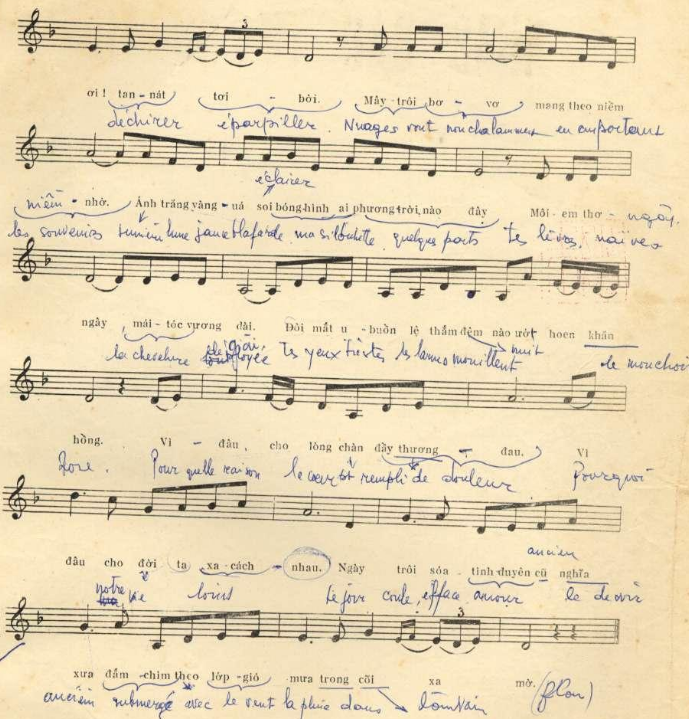 3
ơi ! tan - nát tơi - bời. Mây - trôi bơ - vơ mang theo niềm
déchirer éparpiller. Nuages vont nonchalamment en emportant
éclairer
niềm - nhớ. Ánh trăng vàng - uá soi bóng-hình ai phương-trời, nào đây Môi - em thơ - ngây.
les souvenirs lune jaune blafarde ma silhouette quelque parts tes lèvres, naïves
ngây mái - tóc vương dài. Đôi mắt u - buồn lệ thấm đêm nào ướt hoen khăn
la chevelure tes yeux tristes les larmes mouillent nuit le mouchoir
hồng. Vì - đâu, cho lòng chàn đầy thương - đau. Vì
Rose. Pour quelle raison le cœur est rempli de douleur Pourquoi
ancien
đâu cho đời ta xa - cách - nhau. Ngày trôi sóa - tình duyên cũ nghĩa
notre vie loins Le jour coule, efface amour le devoir
3
xưa đắm - chìm theo lớp - gió mưa trong cõi xa mờ.
ancien submergé avec le vent la pluie dans lointain (flou)